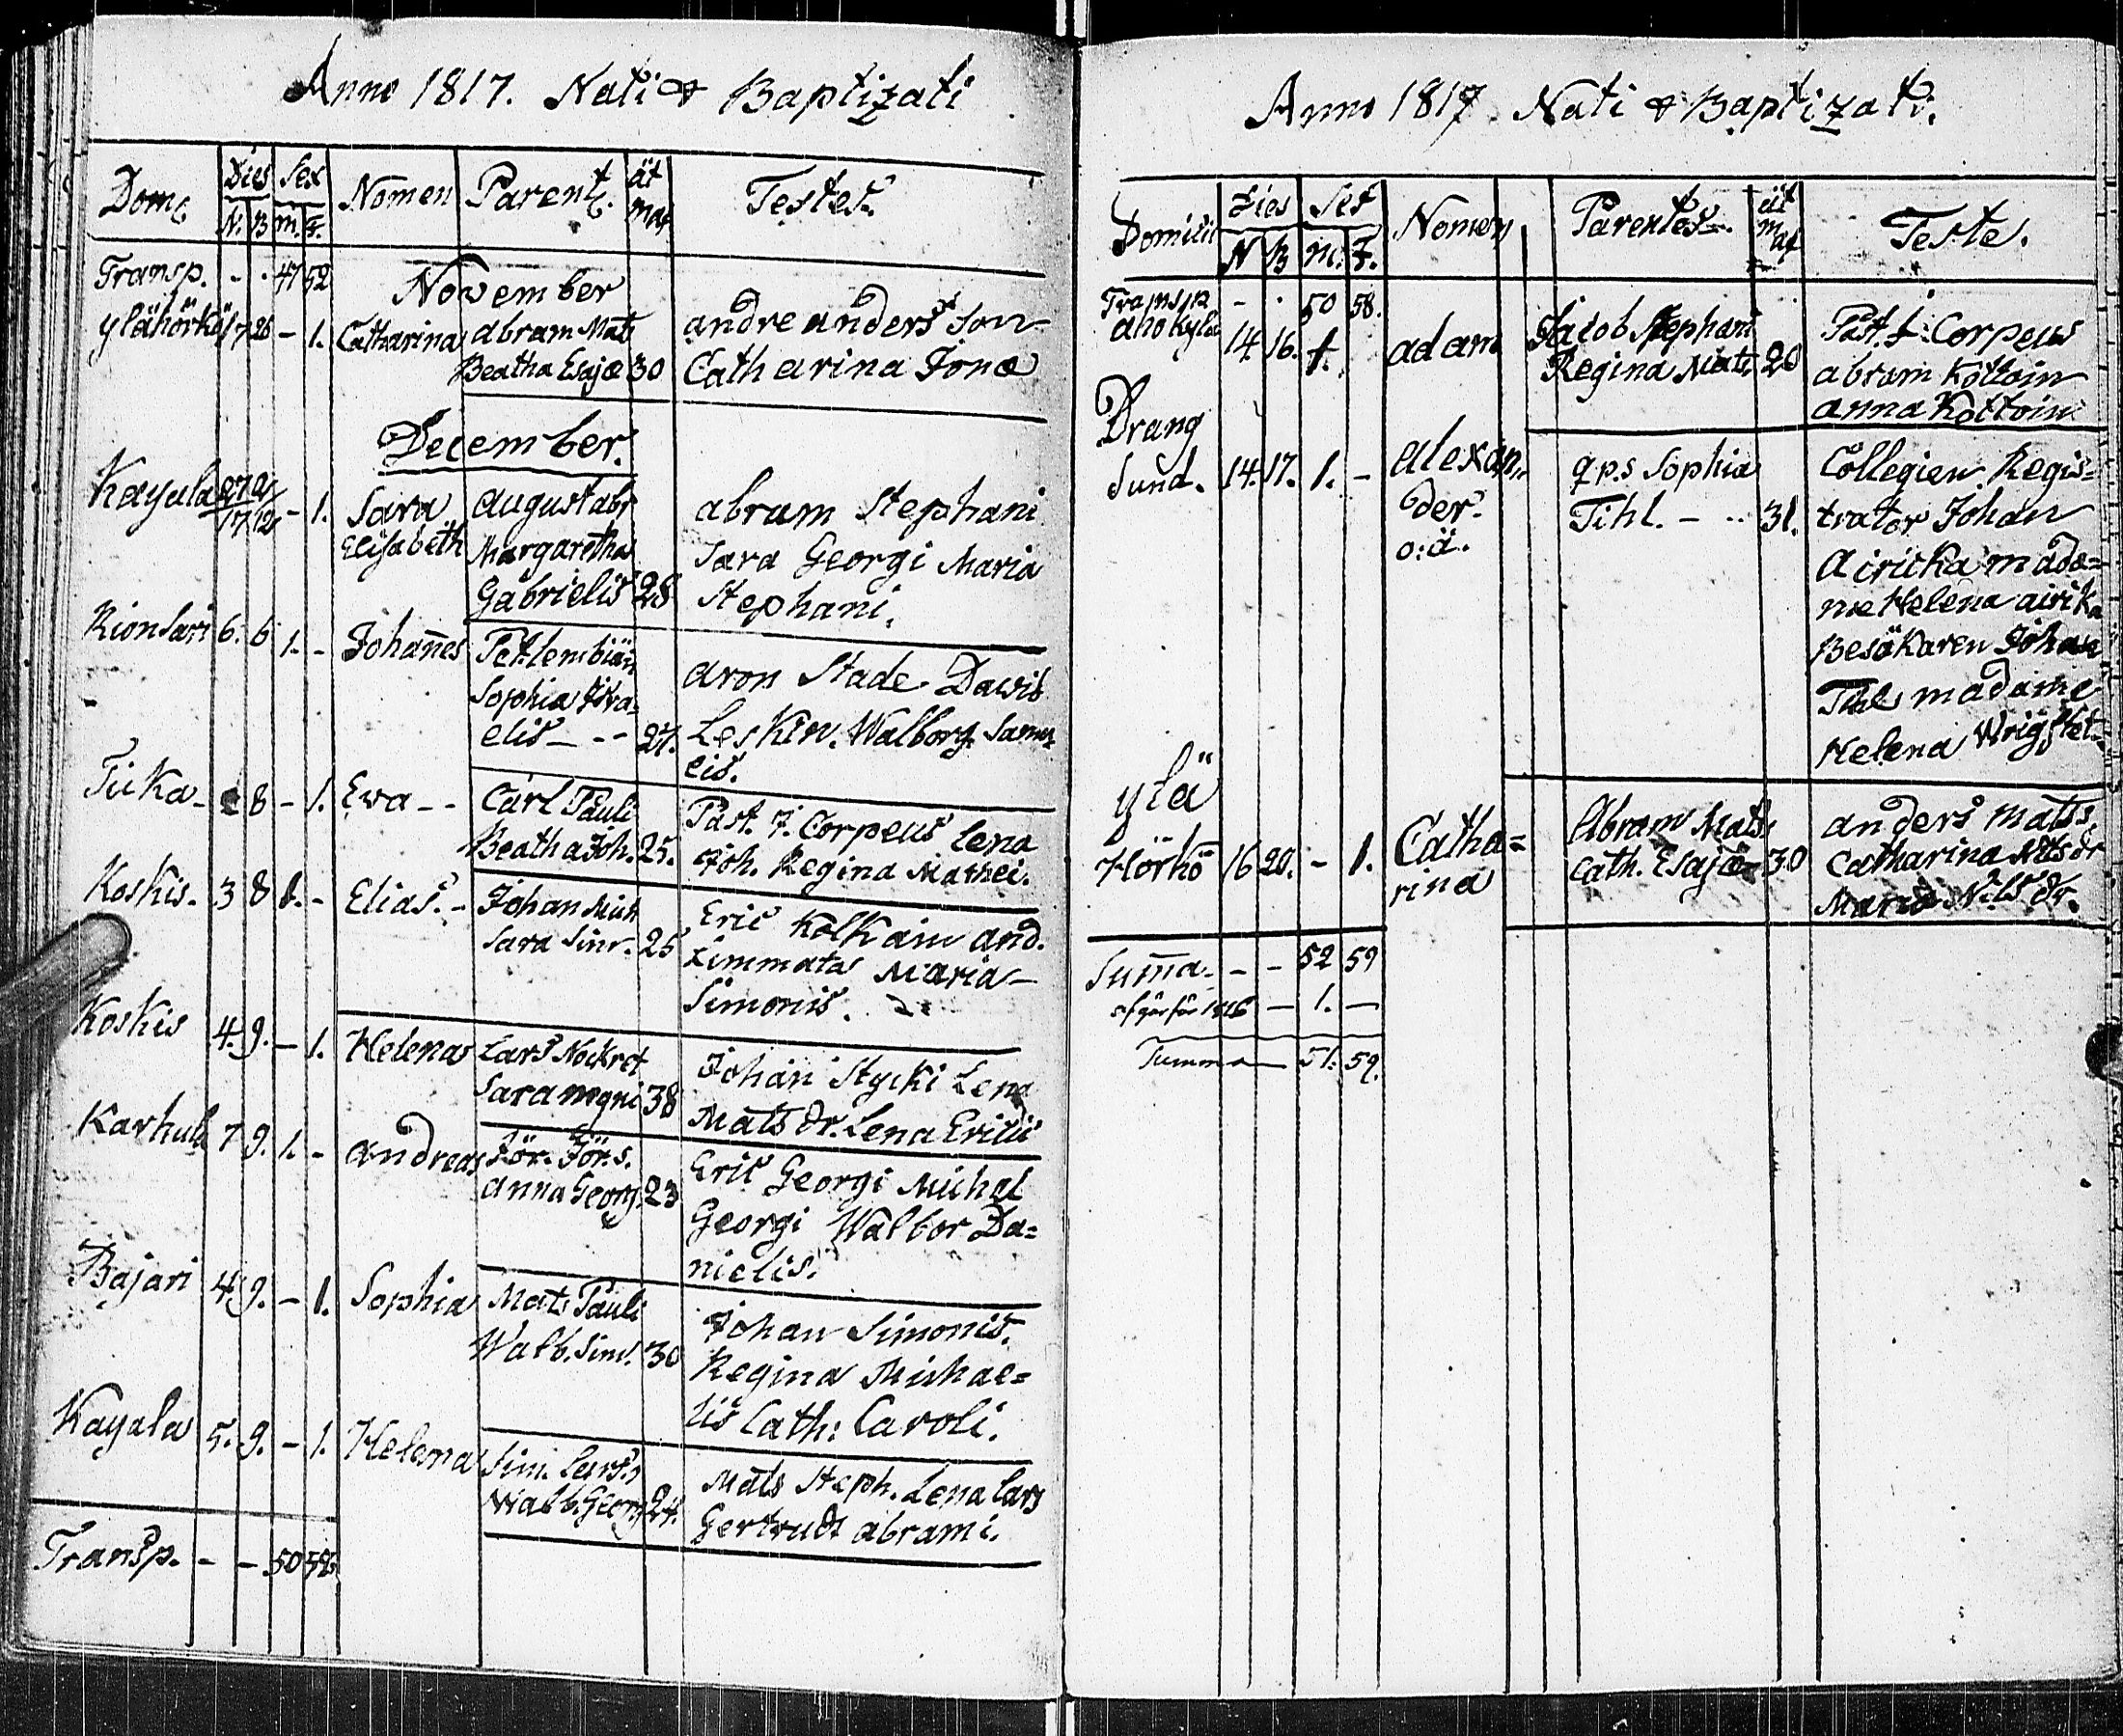 Anno 1817. Nati & Baptizati
Domc Dies Sex Nomen Parent. ät maf Testes.
N. B m. F.
Transp. - - 47 52
November
ylähörkö 17 26 - 1. Catharina abram Mats andre anders Son
Beatha Esajæ 30 Catharina Jonæ
December.
Kayala - 1. Sara august abr abram Stephani
Elisabeth Margaretha Sara Georgi Maria
Gabrielis 28 Stephani.
Kionsari 6. 6 1. - Johan̄es Pet. lembiäin aron Stade David
Sophia Isra=
elis - - - 27. Leskin. Walborg Samu
elis.
Tiika - 8 - 1. Ewa - - Carl Pauli Past. J. Corpeus Lena
Beatha Joh. 25. Joh. Regina Mathei.
Koskis. 3 8 1. - Elias. - Johan Mich Eric Kolkain and.
Sara Sim. 25 Limmata Maria
Simonis.
Koskis 4. 9. - 1. Helena Lars Nockret Johan Stycki Lena
Sara mgni 38 Mats dr. Lena Ericii
Karhula 7 9. 1. - andreas Jör. Jör. s. Eric Georgi Michel
anna Georg. 23 Georgi Walbor Da=
nielis.
Bajari 4. 9. - 1. Sophia Mats Pauli Johan Simonis.
Walb. Sim. 30 Regina Michae=
lis Cath: Caroli.
Kayala 5. 9. - 1. Helena Sim. Lars. Mats Steph. Lena Lars
Walb. Georg 24. Gertrudt abrami.
Transp. - - 50 58
Anno 1817. Nati & Baptizati.
Domicil Dies Sex Nomen Parentes ät maf Teste.
N B m. F.
Transp - - 50 58.
ahokylä 14. 16. 1. adam Jacob Stephani Past. J. Corpeus
Regina Mats 20 abram Kottoin
anna Kottoin
Drang
Sund. 14. 17. 1. - alexan= q.p.s Sophia Collegien Regis=
der. Tihl. - - 31. trator Johan
o:ä. Airicka mada=
me Helena airika
Besökaren Johan
Tihl madame
Helena
ylä
Hörkö 16 20. - 1. Catha= Abram Mats. anders Mats.
rina Cath. Esajæ 30 Catharina Mts dr
Maria Nils dr.
Sum̄a - - 52 59
afgår för 1816 - 1. -
Summa 51. 59.